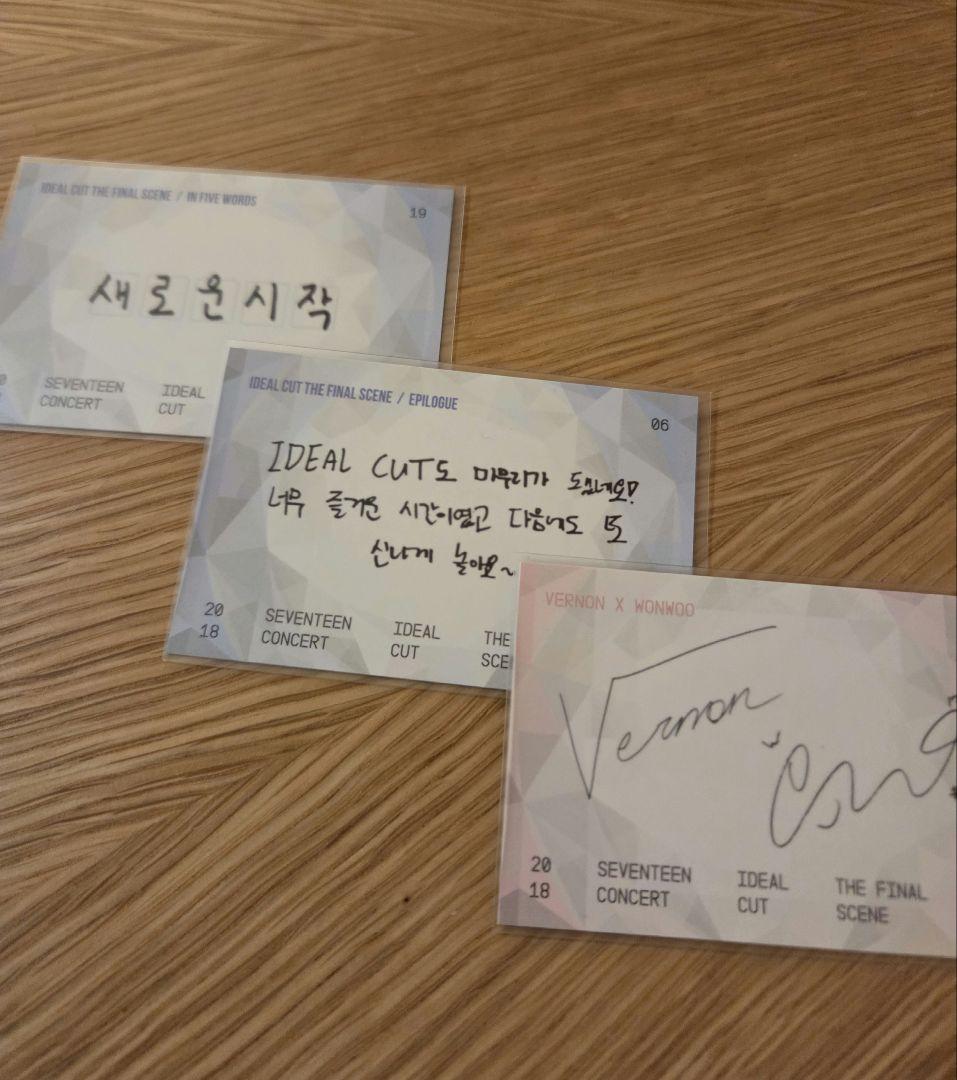 IDEAL CUT THE FINAL SCENE / IN FIVE WORDS
19
새로운시작
SEVENTEEN CONCERT
IDEAL CUT
IDEAL CUT THE FINAL SCENE / EPILOGUE
06
IDEAL CUT도 마무리가 되네요!
너무 즐거운 시간이였고 다음에도 또
신나게 놀아요~
20 18
SEVENTEEN CONCERT
IDEAL CUT
THE
VERNON X WONWOO
Vernon
20 18
SEVENTEEN CONCERT
IDEAL CUT
THE FINAL SCENE